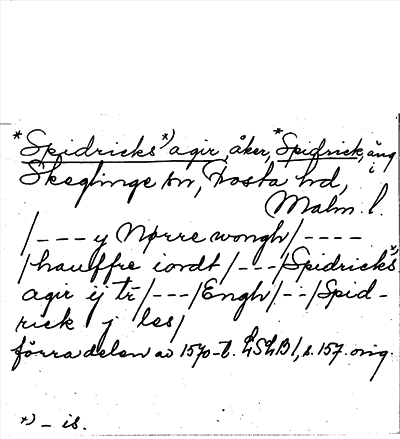 *Spidricks x) agir, åker, *Spidrick, äng i
Skeglinge sn, Frosta hd,
Malm. l.
/--- y Nørre wongh/----
/hauffre iordt/---/Spidricks x)
agir ij tr/---/Engh/--/Spid-
rick j les/
förra delen av 1570-t. LSLB1, s. 157. orig.
x) - is.